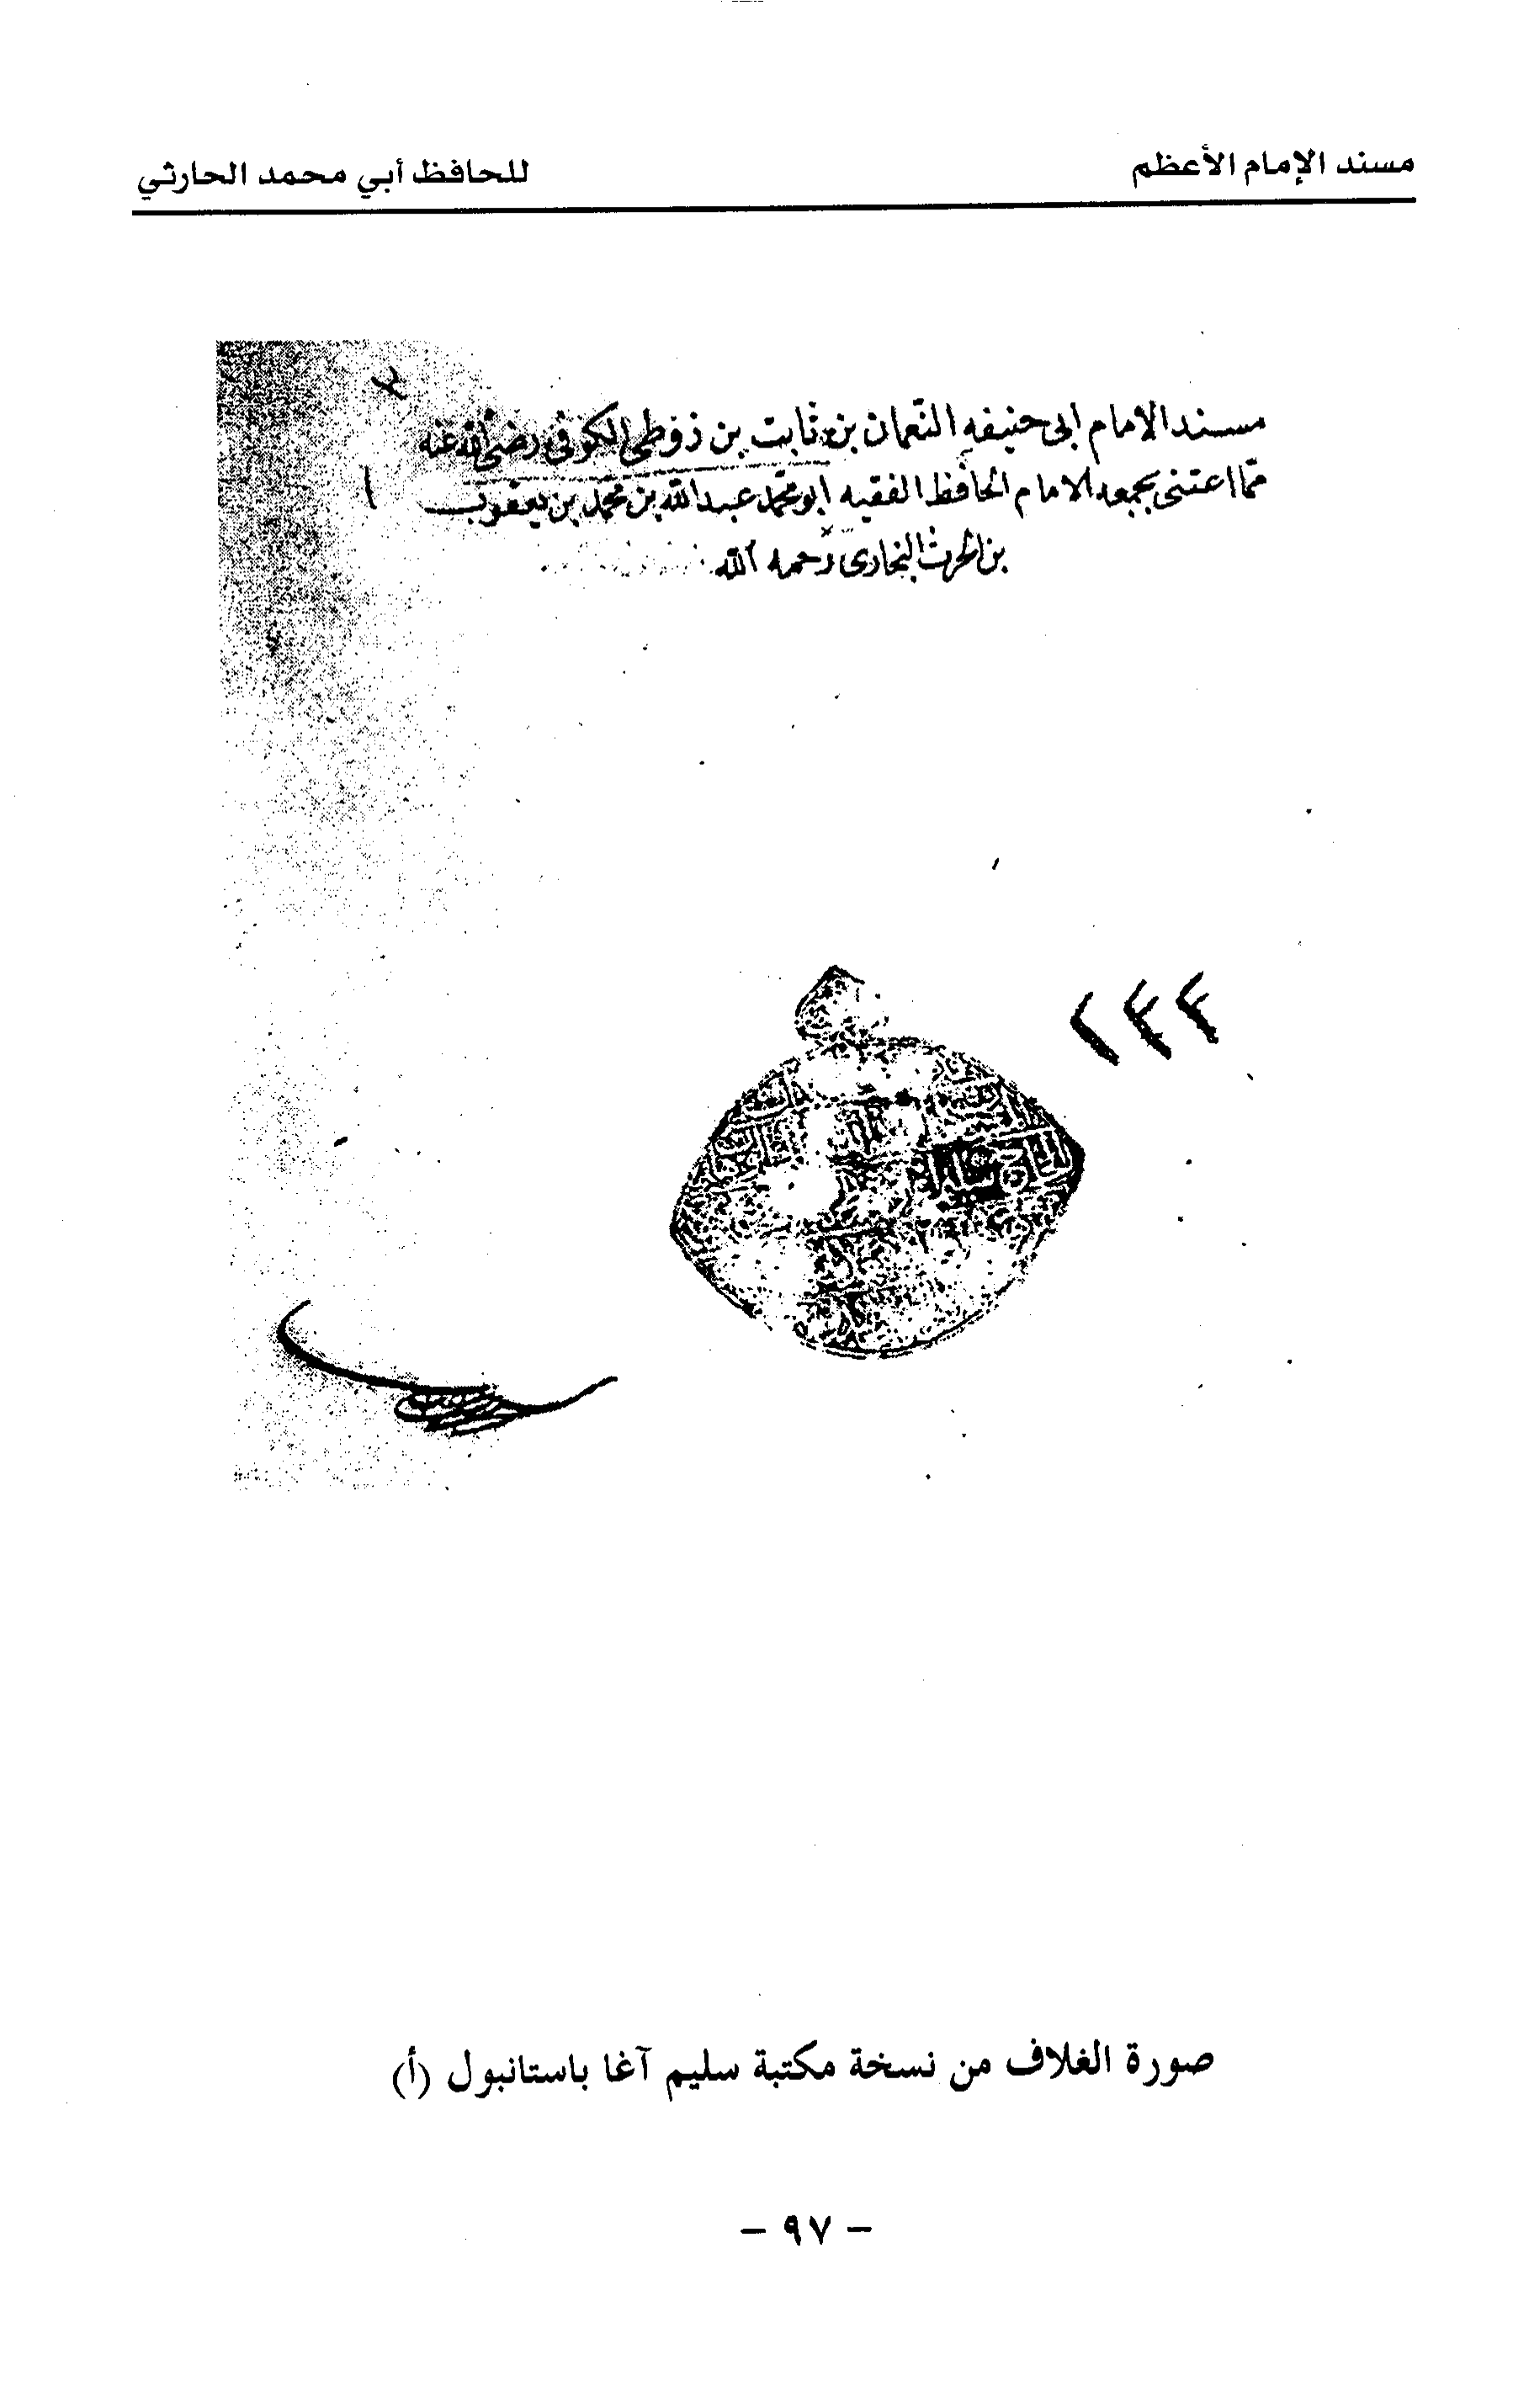 مسند الإمام الأعظم
للحافظ أبي محمد الحارثي
مسند الامام ابى حنيفه النعمان بن ثابت بن زوطى الكوفى رضى الله عنه
مما اعتنى بجمعه الامام الحافظ الفقيه ابو محمد عبد الله بن محمد بن يعقوب
بن الحرث البخارى رحمه الله
صورة الغلاف من نسخة مكتبة سليم آغا باستانبول (أ)
- ٩٧ -